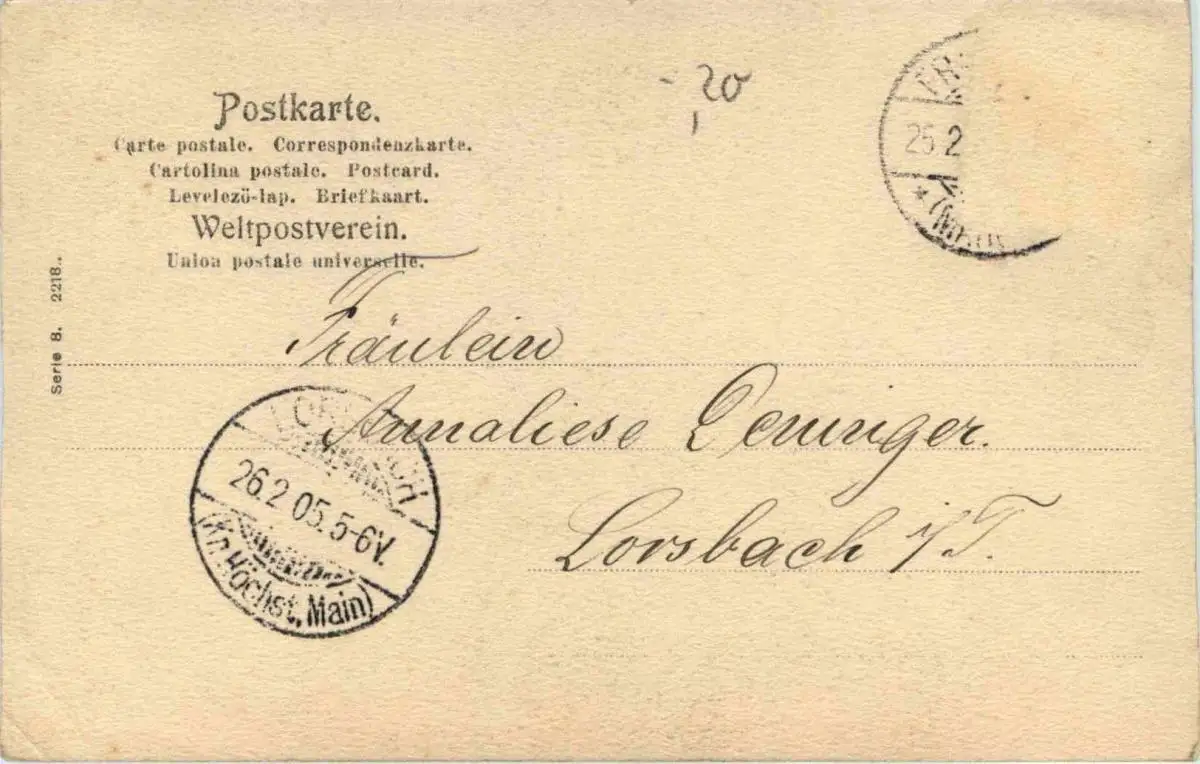 -,20
Postkarte.
Carte postale. Correspondenzkarte.
Cartolina postale. Postcard.
Levelezö-lap. Briefkaart.
Weltpostverein.
Union postale universelle.
25.2
* (MAIN
Serie 8. 2218.
Fräulein
Annaliese Deninger.
Lorsbach i/T.
LORSBACH
26.2.05.5-6V.
(Kr. Höchst, Main)